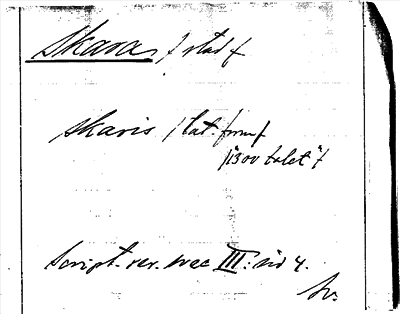 Skara / stad /
skaris / lat. form /
/ "1300 talet" /
Script. rer. svec III: sid 4.